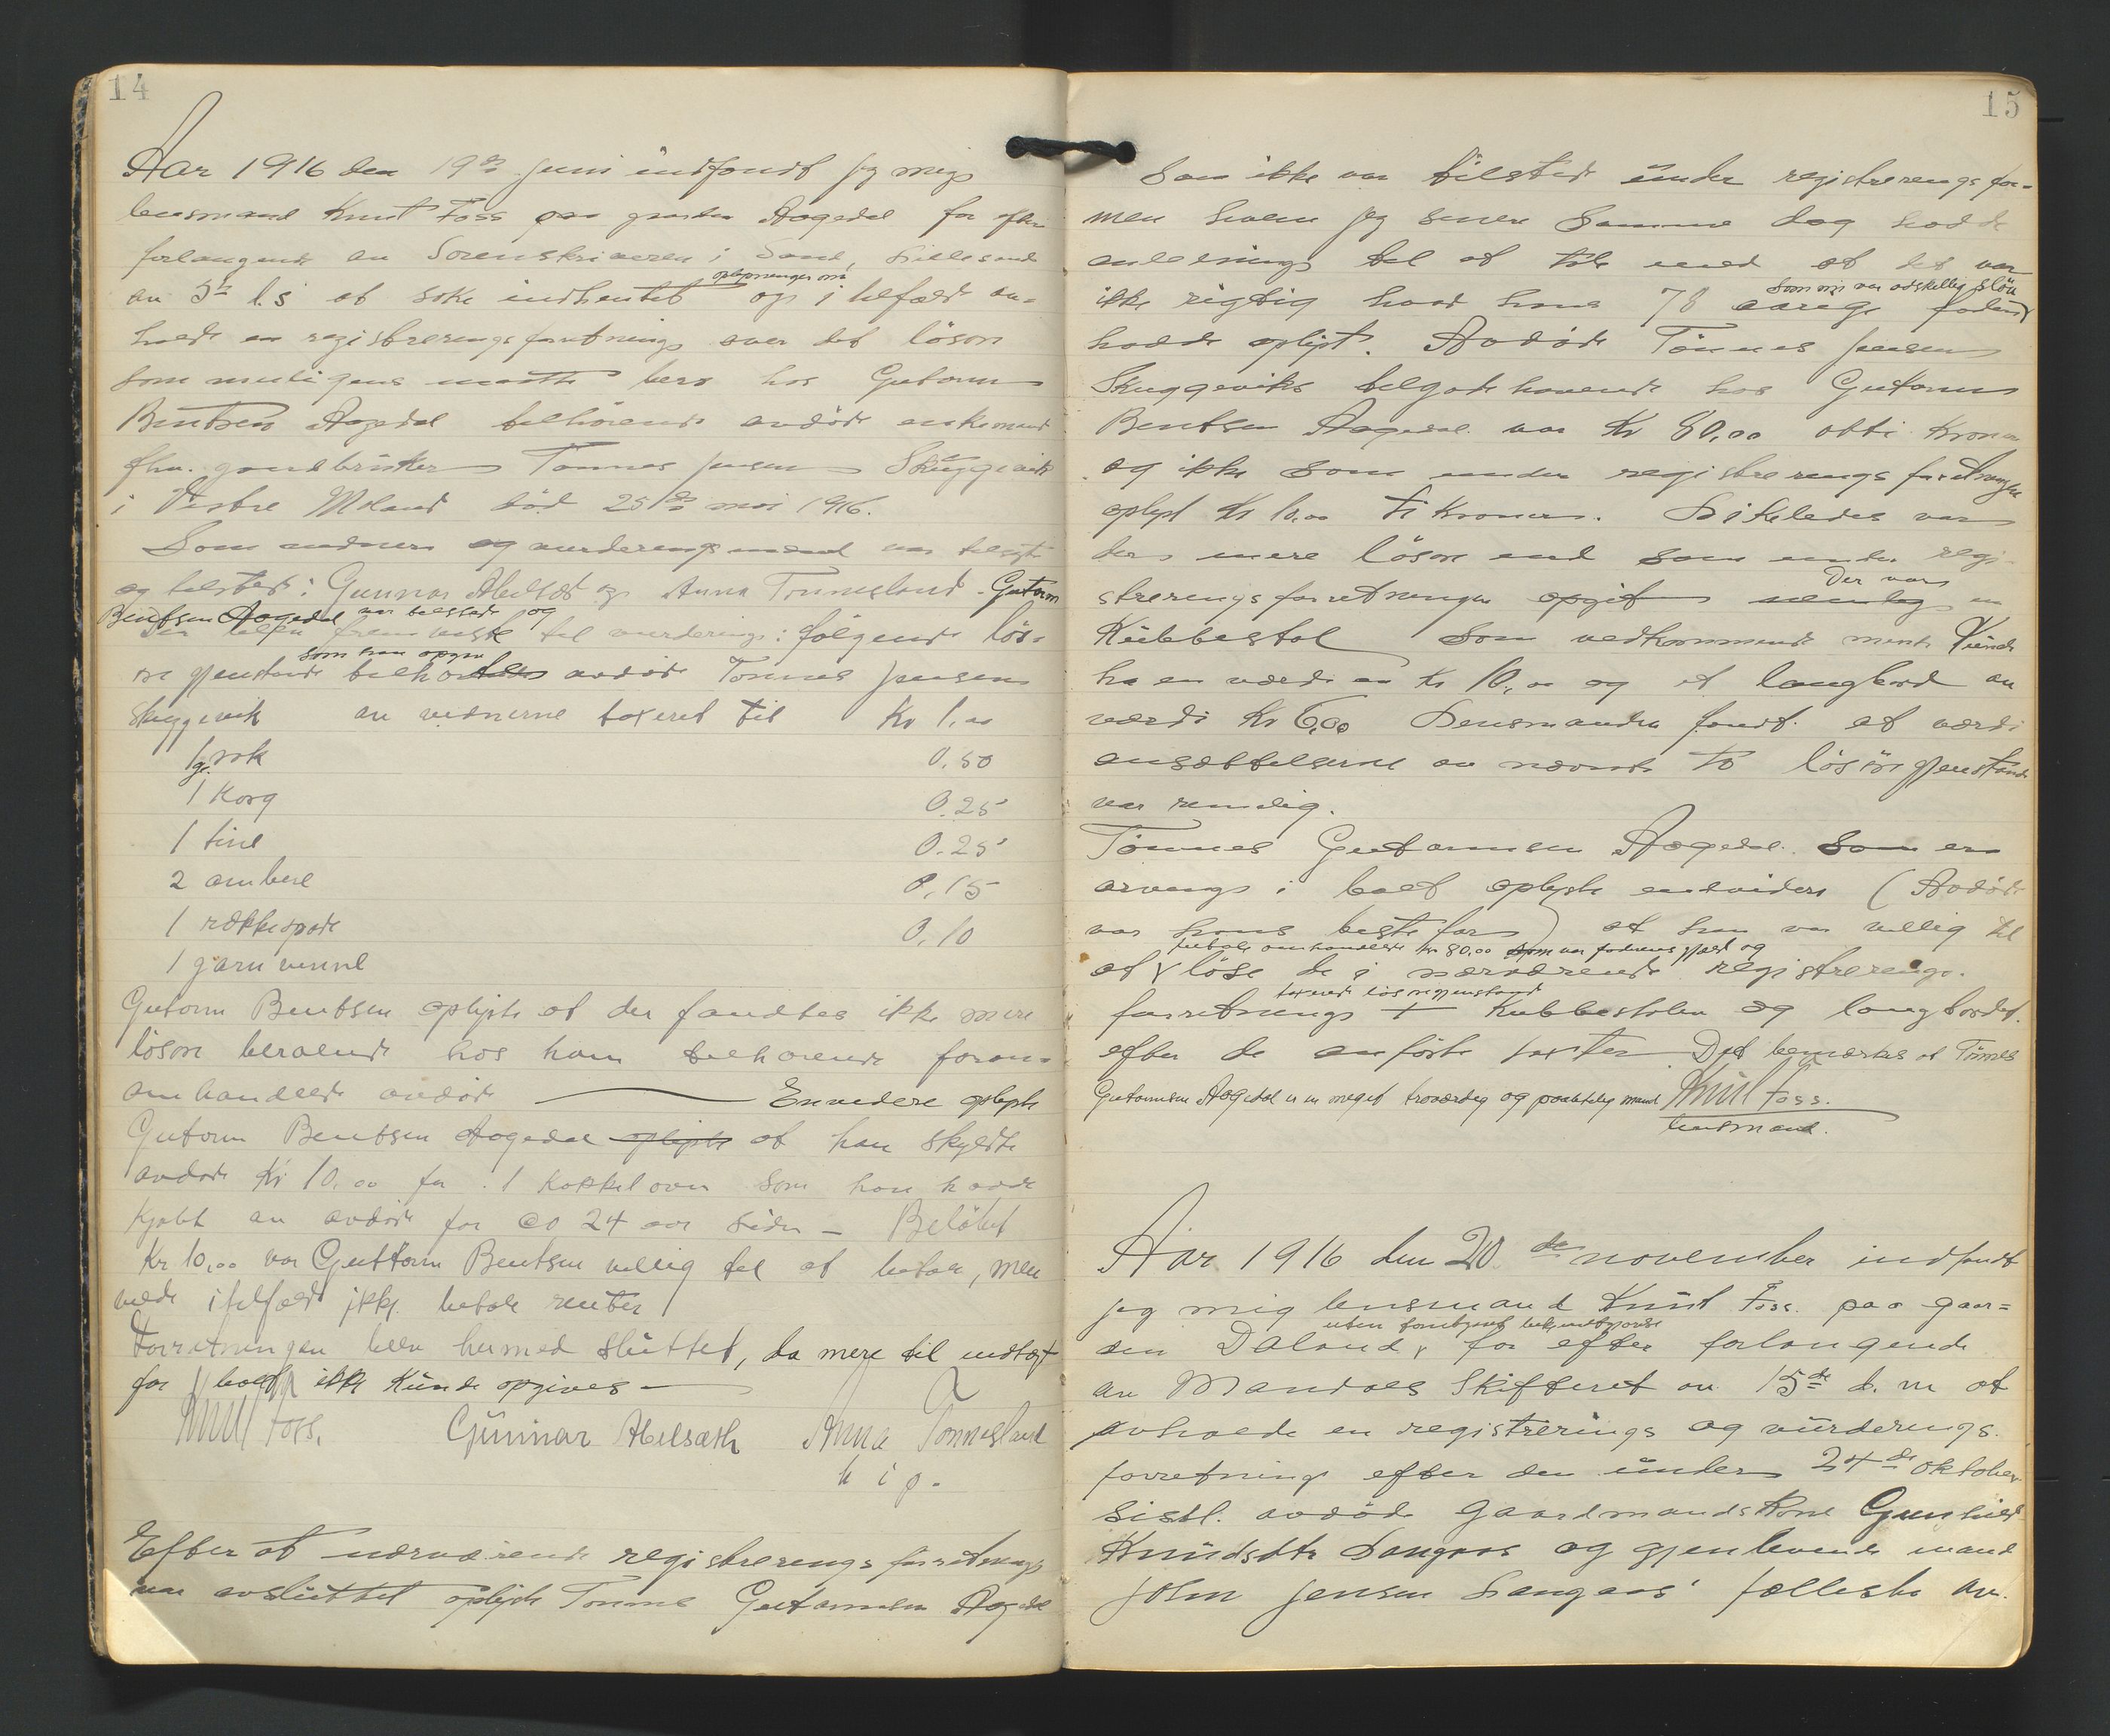 14
Aar 1916 den 19de juni indfandt jeg mig
lensmand Knut Foss paa gaarden Aagedal for efter
forlangende av Sorenskriveren i Sand, Lillesand
oplysninger om
av 5te l.s at søke indhentet og i tilfælde av-
holde en registrerings forretning over det løsøre
som muligens maatte bero hos Gutorm
Bentsen Aagedal tilhørende avdøde enkemand
fhv. gaardbruker Tønnes Jensen Skuggevik
i Vestre Moland død 25de mai 1916.
Som vidner og vurderingsmænd var tilsagt
og tilstede: Gunnar Abelsæt og Anna Tonnesland. Gutorm
Bentsen Aagedal var tilstede og
fremviste til vurdering: følgende løs-
som han opgav
øre gjenstande tilhørte avdøde Tønnes Jensen
Skuggevik av vidnerne taxeret til Kr 1.00
1 rok 0.50
1 gr. korg 0.25
1 tine 0.25
2 ambere 0.15
1 rækkespade 0.10
1 garnvinne
Gutorm Bentsen oplyste at der fandtes ikke mere
løsøre beroende hos ham tilhørende foran-
omhandlede avdøde Envidere oplyste
Gutorm Bentsen Aagedal oplyste at han skyldte
avdøde Kr 10.00 for 1 kakkelovn som han hadde
kjøbt av avdøde for ca 24 aar siden - Beløbet
Kr 10,00 var Guttorm Bentsen villig til at betale, men
vilde i tilfælde ikke betale renter
Forretningen blev hermed sluttet, da mere til indtægt
for boet ikke kunde opgives
Knut Foss. Gunnar Abelsæth Anna Tonnesland
Efter at nærværende registrerings forretning
var avsluttet oplyste Tønnes Gutormsen Aagedal
15
som ikke var tilstede under registrerings for-
men hvem jeg senere samme dag hadde
anledning til at tale med at det var
som nu var adskillig sløv
ikke rigtig hvad hans 78 aarige fader
hadde oplyst. Avdøde Tønnes Jensen
Skuggeviks tilgodehavende hos Gutorm
Bentsen Aagedal var Kr 80,00 otti kroner
og ikke som under registrerings forretningen
oplyst Kr 10,00 ti kroner. Likeledes var
der mere løsøre end som under regi-
Der var
strerings forretningen opgit nemlig en
Kubbestol som vedkommende mente kunde
ha en værdi av Kr 10,00 og et langbord av
værdi Kr 6,00 Lensmanden fandt at værdi
ansættelserne av nævnte to løsøre gjenstande
var rimelig.
Tønnes Gutormsen Aagedal som er
arving i boet oplyste endvidere (Avdøde
var hans bestefar) at han var villig til
betale omhandlede kr 80,00 som var faderens gjæld og
at løse de i nærværende registrerings-
taxerede løsøregjenstand
forretning + Kubbestolen og langbordet.
efter de anførte taxter Det bemærkes at Tønnes
Gutormsen Aagedal er en meget troværdig og paalitelig mand Knut Foss.
lensmand.
Aar 1916 den 20de november indfandt
jeg mig lensmand Knut Foss. paa gaar=
uten forutgaaende bekjendtgjørelse
den Daland, for efter forlangende
av Mandals Skifteret av 15de d. m at
avholde en registrerings og vurderings
forretning efter den under 24de oktober
sistl. avdøde gaardmandskone Gunhild
Knudsdtr Langaas og gjenlevende mand
John Jensen Langaas' fællesbo av.